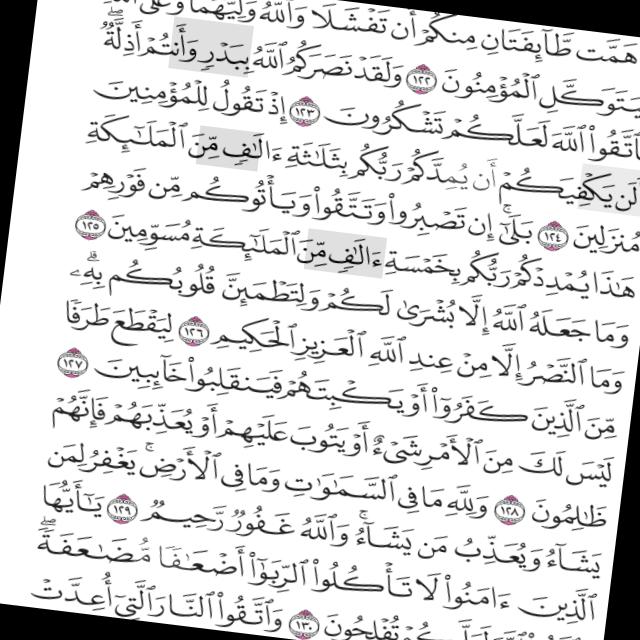 هَمَّت طَّآئِفَتَانِ مِنكُمْ أَن تَفْشَلَا وَٱللَّهُ وَلِيُّهُمَا وَعَلَى
يَتَوَكَّلِ ٱلْمُؤْمِنُونَ ١٢٢ وَلَقَدْ نَصَرَكُمُ ٱللَّهُ بِبَدْرٍ وَأَنتُمْ أَذِلَّةٌۖ
ٱتَّقُوا۟ ٱللَّهَ لَعَلَّكُمْ تَشْكُرُونَ ١٢٣ إِذْ تَقُولُ لِلْمُؤْمِنِينَ
لَن يَكْفِيَكُمْ أَن يُمِدَّكُمْ رَبُّكُم بِثَلَٰثَةِ ءَالَٰفٍ مِّنَ ٱلْمَلَٰٓئِكَةِ
مُنزَلِينَ ١٢٤ بَلَىٰٓۚ إِن تَصْبِرُوا۟ وَتَتَّقُوا۟ وَيَأْتُوكُم مِّن فَوْرِهِمْ
هَٰذَا يُمْدِدْكُمْ رَبُّكُم بِخَمْسَةِ ءَالَٰفٍ مِّنَ ٱلْمَلَٰٓئِكَةِ مُسَوِّمِينَ ١٢٥
وَمَا جَعَلَهُ ٱللَّهُ إِلَّا بُشْرَىٰ لَكُمْ وَلِتَطْمَئِنَّ قُلُوبُكُم بِهِۦۗ
وَمَا ٱلنَّصْرُ إِلَّا مِنْ عِندِ ٱللَّهِ ٱلْعَزِيزِ ٱلْحَكِيمِ ١٢٦ لِيَقْطَعَ طَرَفًا
مِّنَ ٱلَّذِينَ كَفَرُوٓا۟ أَوْ يَكْبِتَهُمْ فَيَنقَلِبُوا۟ خَآئِبِينَ ١٢٧
لَيْسَ لَكَ مِنَ ٱلْأَمْرِ شَىْءٌ أَوْ يَتُوبَ عَلَيْهِمْ أَوْ يُعَذِّبَهُمْ فَإِنَّهُمْ
ظَٰلِمُونَ ١٢٨ وَلِلَّهِ مَا فِى ٱلسَّمَٰوَٰتِ وَمَا فِى ٱلْأَرْضِۚ يَغْفِرُ لِمَن
يَشَآءُ وَيُعَذِّبُ مَن يَشَآءُۚ وَٱللَّهُ غَفُورٌ رَّحِيمٌ ١٢٩ يَٰٓأَيُّهَا
ٱلَّذِينَ ءَامَنُوا۟ لَا تَأْكُلُوا۟ ٱلرِّبَوٰٓا۟ أَضْعَٰفًا مُّضَٰعَفَةًۖ
تُفْلِحُونَ ١٣٠ وَٱتَّقُوا۟ ٱلنَّارَ ٱلَّتِىٓ أُعِدَّتْ